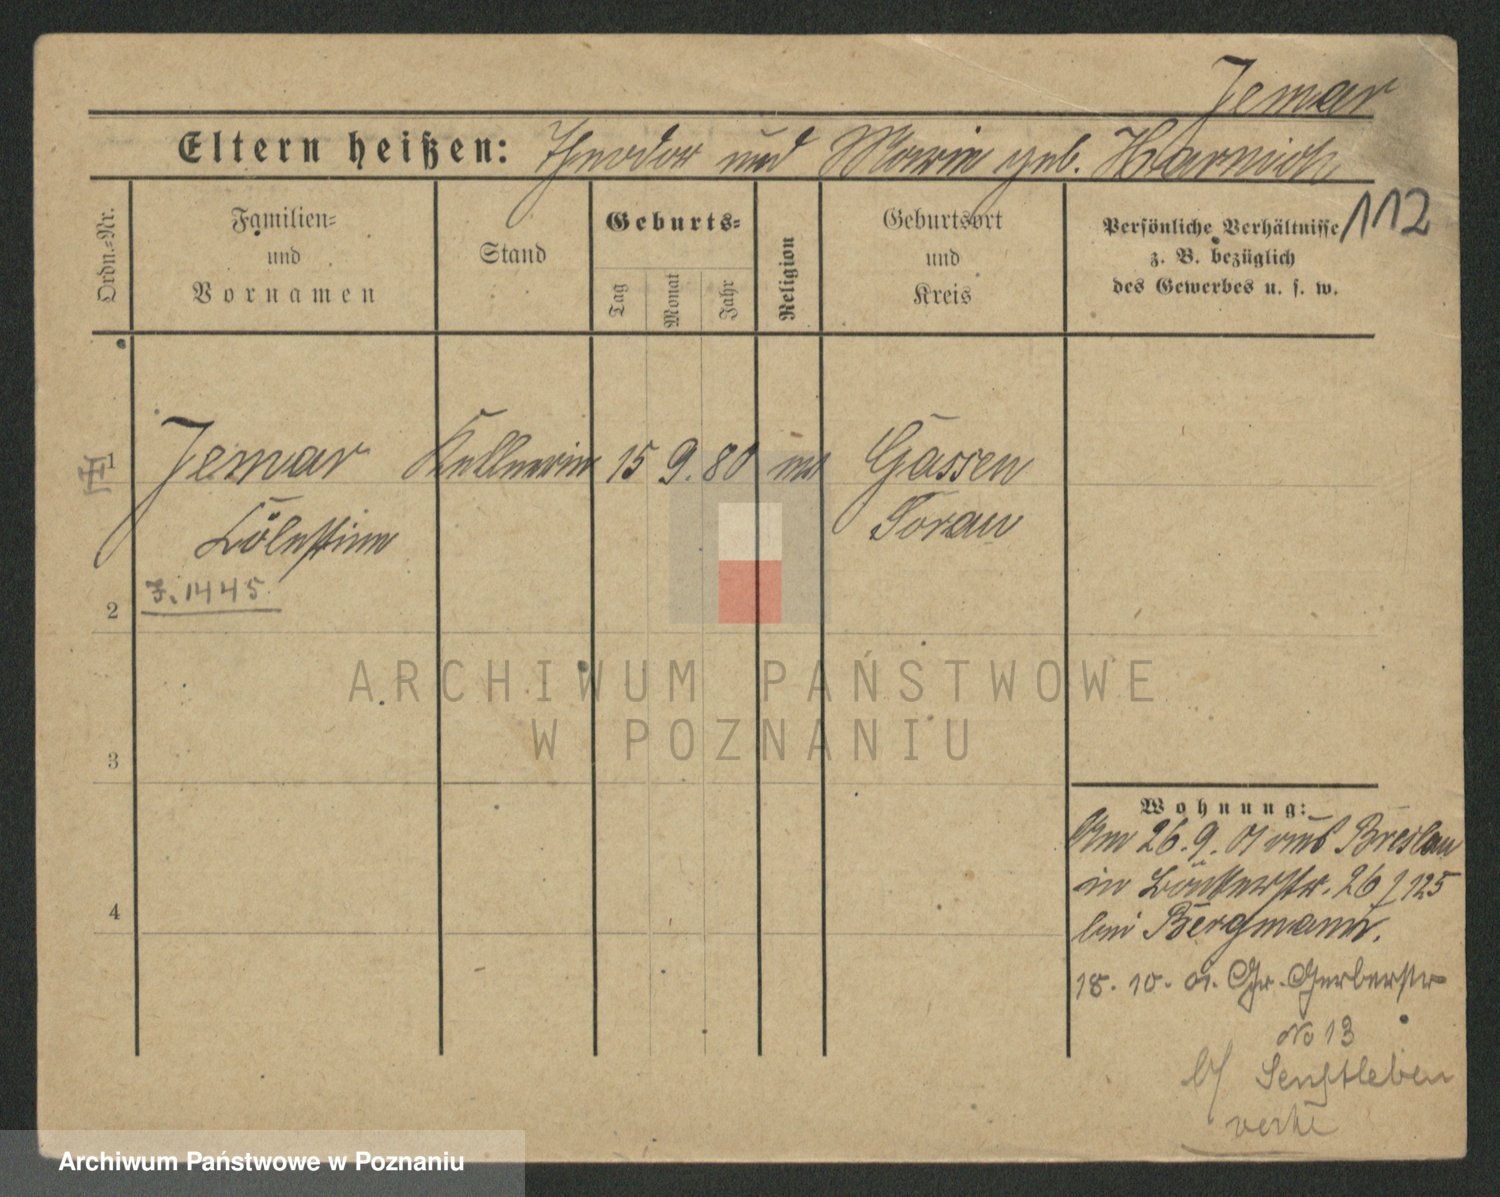 Jemar
Eltern heißen: Theodor und Marie geb. Harnisch
112
Ordn.=Nr.
Familien=
und
Vornamen
Stand
Geburts=
Tag
Monat
Jahr
Religion
Geburtsort
und
Kreis
Persönliche Verhältnisse
z. B. bezüglich
des Gewerbes u. s. w.
1
Jemar Kellnerin 15 9. 80 ev Gassen
Cölestine Sorau
2
3. 1445
3
4
Wohnung:
Am 26. 9. 01 aus Breslau
in 26 / 125
bei Bergmann.
18. 10. 01. Gr. Gerberstr
No 13
b/ Senftleben
ARCHIWUM PAŃSTWOWE
W POZNANIU
Archiwum Państwowe w Poznaniu